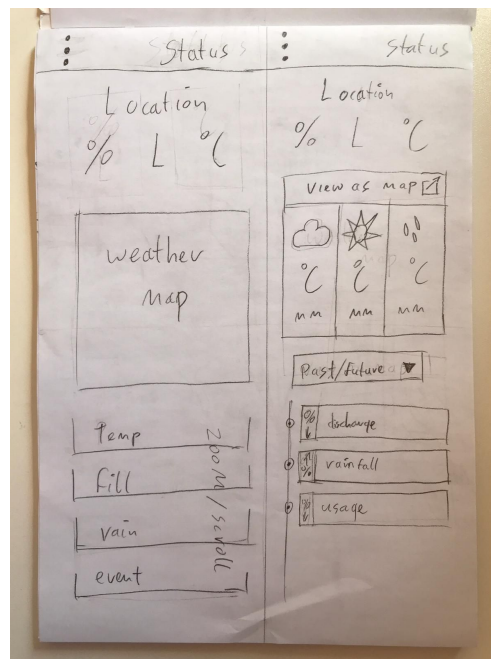 Status
Location
% L °C
weather
map
Temp
fill
rain
event
zoom/scroll
Status
Location
% L °C
View as map
°C °C °C
mm mm mm
Past/future
% discharge
% rainfall
% usage